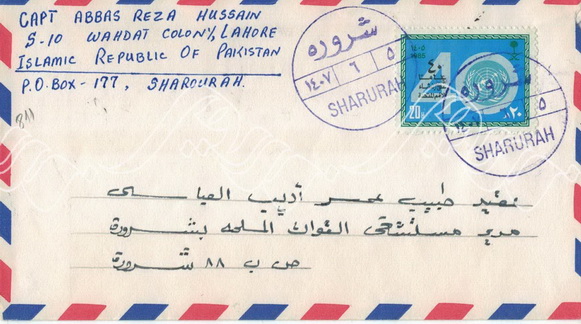 CAPT ABBAS REZA HUSSAIN
S-10 WAHDAT COLONY LAHORE
ISLAMIC REPUBLIC OF PAKISTAN
P.O.BOX-177, SHAROURAH.
شروره
١٤٠٧ ٦ ٥
SHARURAH
١٤٠٥
1985
40
٤٠
20
٢٠
شروره
١٤٠ ٥
SHARURAH
طبيب عمر أديب العباسى
مدير مستشفى القوات المسلحه بشرورة
ص ب ٨٨ شرورة